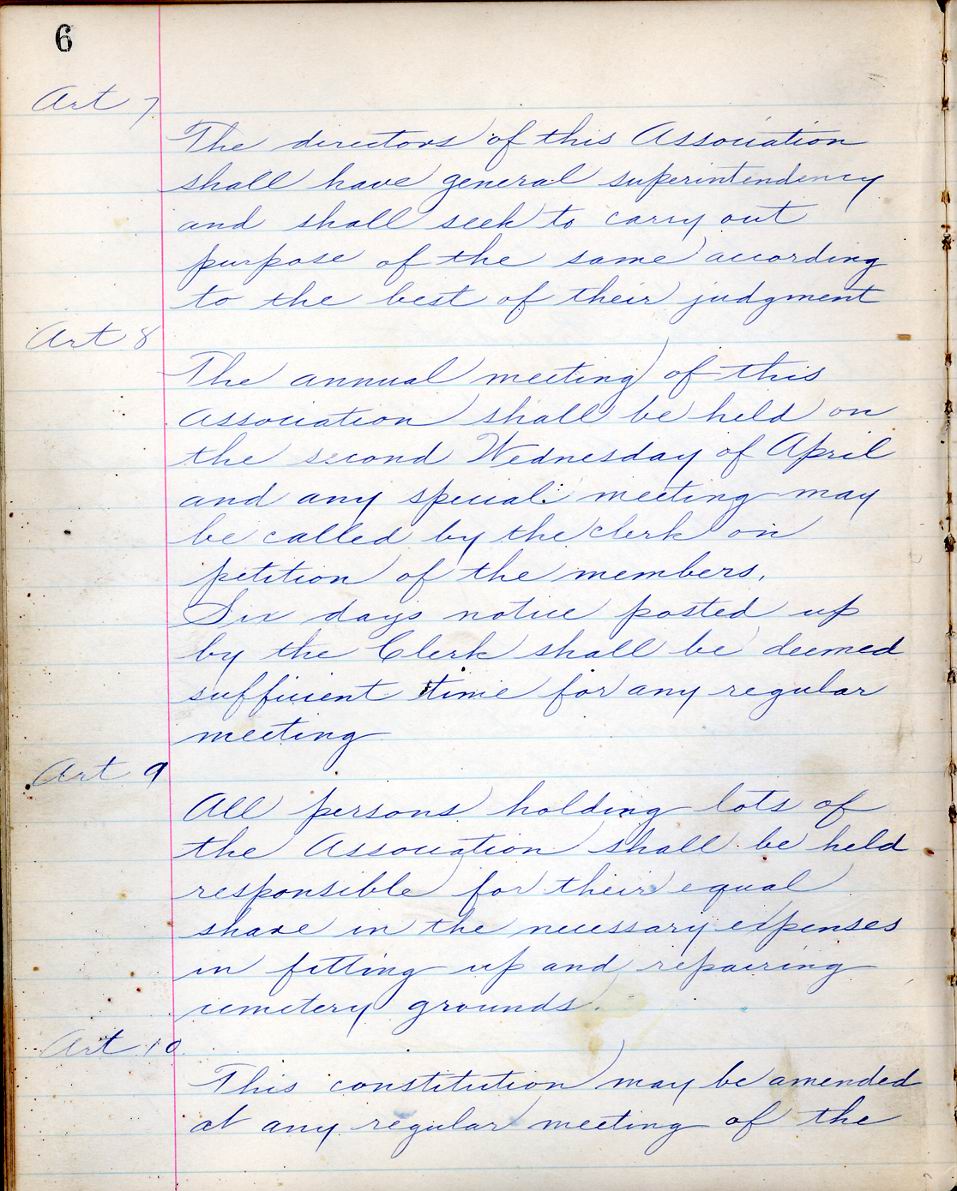 6
Art 7
The directors of this Association
shall have general superintendency
and shall seek to carry out
purpose of the same according
to the best of their judgment
Art 8
The annual meeting of this
Association shall be held on
the second Wednesday of April
and any special meeting may
be called by the clerk on
petition of the members.
Six days notice posted up
by the Clerk shall be deemed
sufficient time for any regular
meeting
Art 9
All persons holding lots of
the Association shall be held
responsible for their equal
share in the necessary expenses
in fitting up and repairing
cemetery grounds.
Art 10
This constitution may be amended
at any regular meeting of the